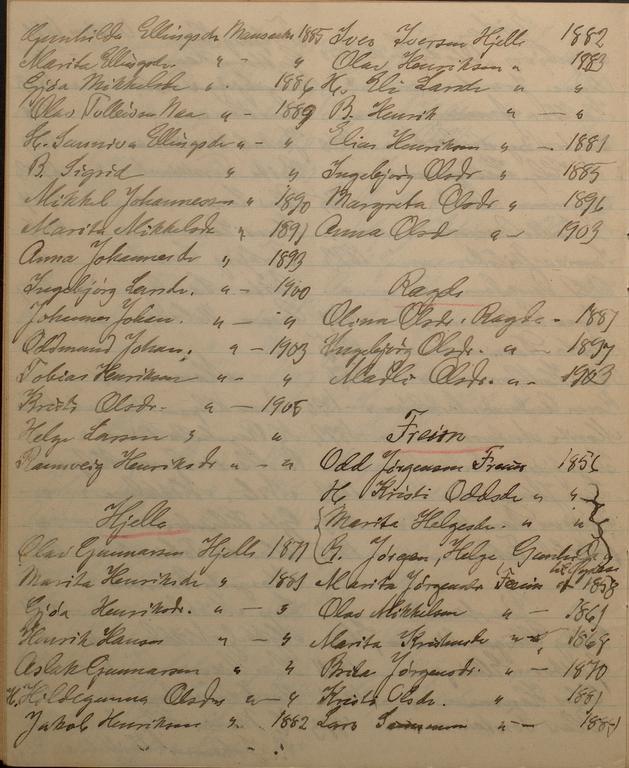 Gunhilda Ellingsdr Mausaeter 1885
Marita Ellingsdr. " - "
Gjøa Mikkelsdr " . 1886
Olav Tolleivsen Naa " - 1889
H. Sunniva Ellingsdr " - "
B. Sigrid " "
Mikkel Johannessen " 1890
Marita Mikkelsdr " 1891
Anna Johannesdr " 1893
Ingebjørg Larsdr. " - 1900
Johannes Johan. " - "
Oddmund Johan. " - 1903
Tobias Henriksen " - "
Kristi Olsdr. " - 1905
Helge Larsen " "
Ramsveig Henriksdr " - "
Hjelle
Olav Gunnarsen Hjelle 1871
Marita Henriksdr " 1881
Gjøa Henriksdr. " - "
Henrik Hansen " - "
Aslak Gunnarsen " "
H. Hildegunna Olsdr " - "
Jakob Henriksen " . 1882
Iver Iversen Hjelle 1882
Olav Henriksen " 1883
H. Eli Larsdr " "
B. Henrik " - "
Elias Henriksen " - 1881
Ingebjørg Olsdr " 1885
Margreta Olsdr " 1896
Anna Olsd " - 1903
Ragde
Olina Olsdr. Ragde - 1887
Ingebjørg Olsdr. " - 1897
Madli Olsdr. " - 1903
Freim
Odd Jørgensen Freim 1856
H. Kristi Oddsdr " "
Marita Helgesdr. " "
B. Jørgen, Helge, "
Marita Jørgensdr Freim 1858
Olav Mikkelsen " - 1861
Marita " 1868
Brita Jørgensdr. " - 1870
Kristi Olsdr. " 1881
Lars " -